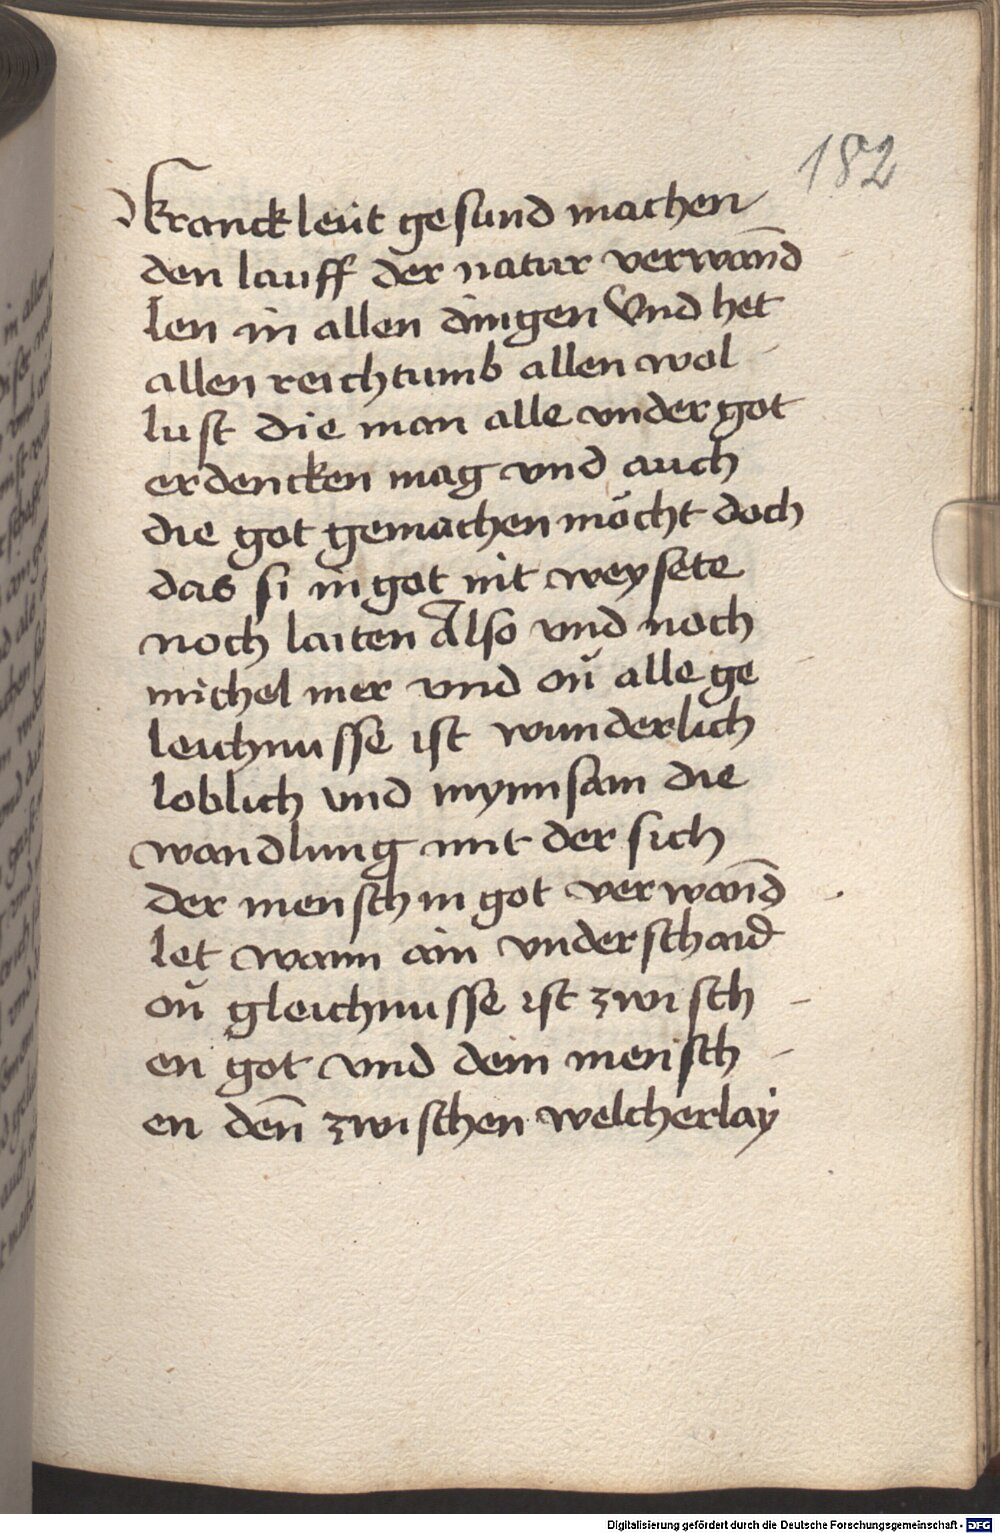 182
kranck leüt gesund machen
den lauff der natur verwand̄
len in allen dingen Vnd het
allen reichtumb allen wol
lust die man alle vnder got
erdencken mag vnd auch
die got gemachen möcht doch
das si in got nit weysete
noch laiten Also vnd noch
michel mer vnd on̆ alle ge
leichnusse ist wunderlich
loblich vnd mynnsam die
wandlung mit der sich
der mensch in got verwand̄
let wann ain vnderschaid
on̆ gleichnusse ist zwisch
en got vnd dem mensch
en den̄ zwischen welcherlay
Digitalisierung gefördert durch die Deutsche Forschungsgemeinschaft - DFG